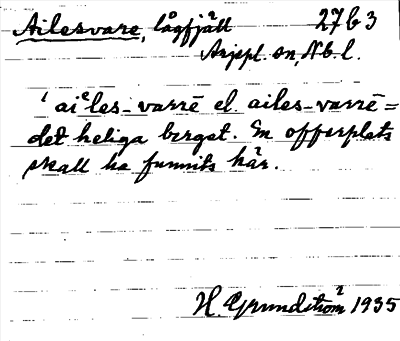 Ailesvare, lågfjäll 27b3
Arjepl. sn, Nb. l.
'aiᵉles-varrē el. ailes-varrē =
det heliga berget. En offerplats
skall ha funnits här.
H. Grundström 1935